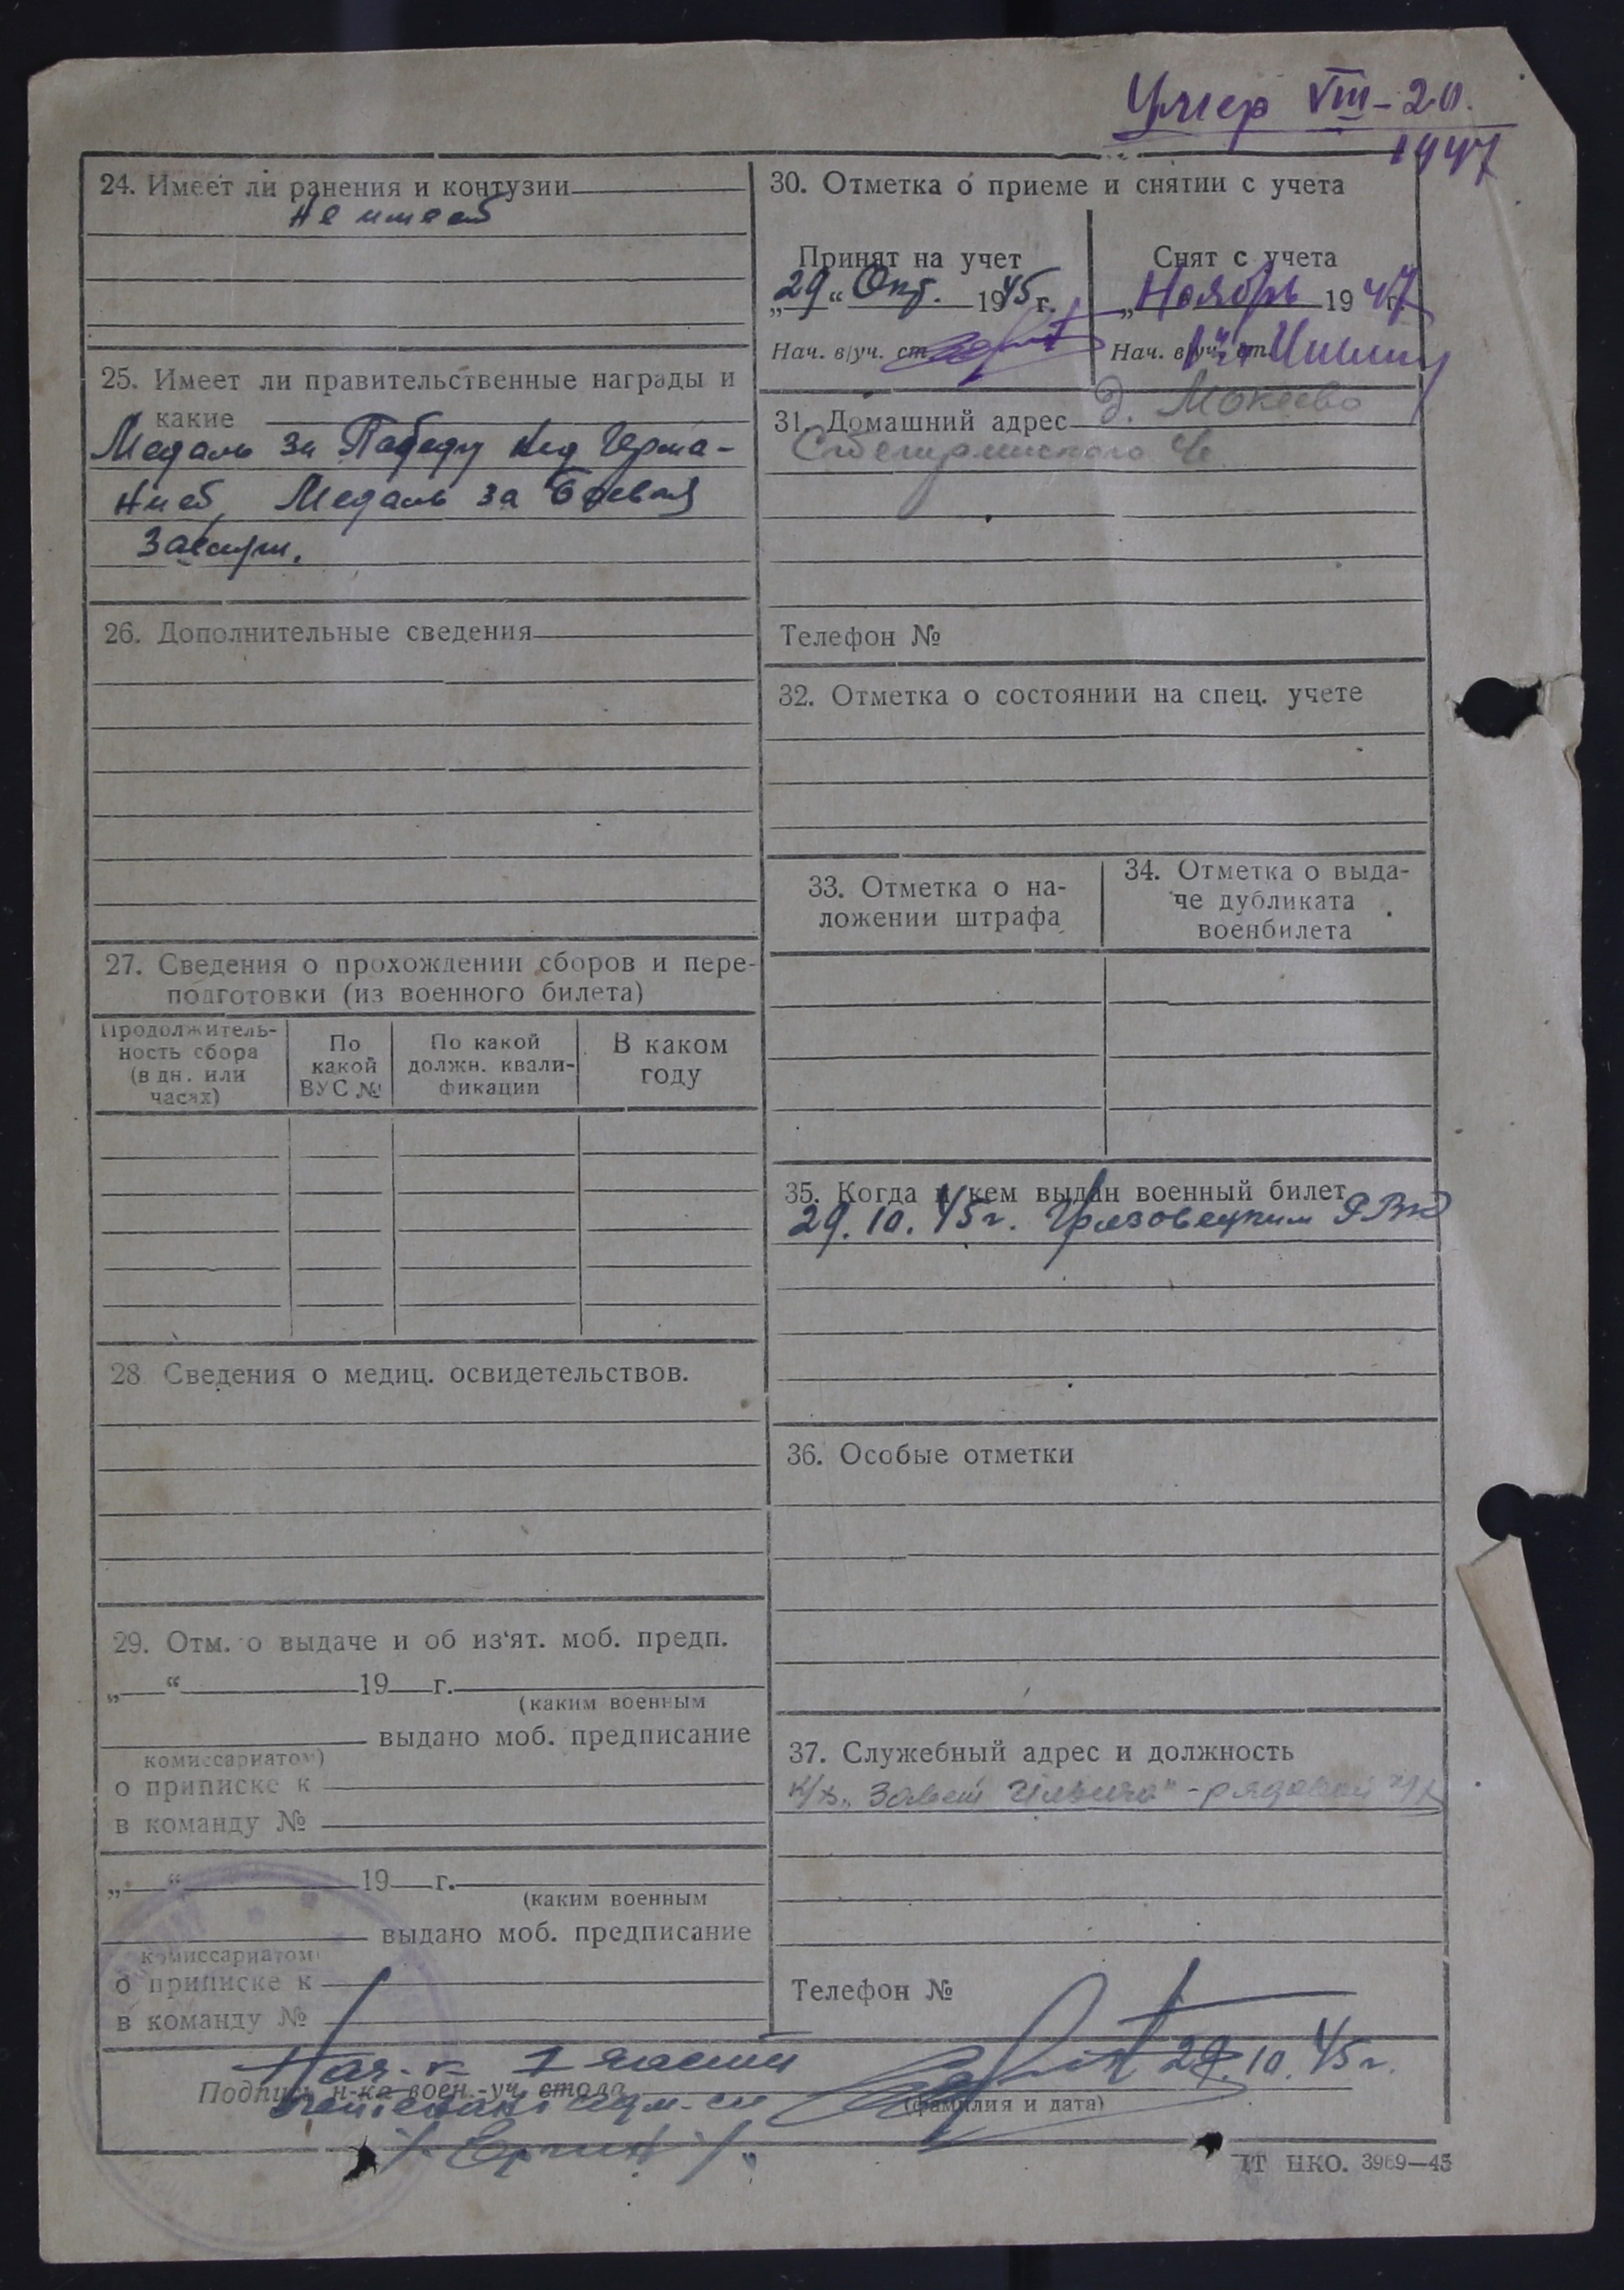 Умер VIII-20.
1947
24. Имеет ли ранения и контузии
Не имеет
25. Имеет ли правительственные награды и
какие
Медаль за Победу над Герма-
нией, Медаль за Боевые
Заслуги.
26. Дополнительные сведения
27. Сведения о прохождении сборов и пере-
подготовки (из военного билета)
Продолжитель-
ность сбора
(в дн. или
часах)
По
какой
ВУС №
По какой
должн. квали-
фикации
В каком
году
28 Сведения о медиц. освидетельствов.
29. Отм. о выдаче и об из'ят. моб. предп.
„ “ 19 г.
(каким военным
выдано моб. предписание
комиссариатом)
о приписке к
в команду №
„ “ 19 г.
(каким военным
выдано моб. предписание
комиссариатом)
о приписке к
в команду №
30. Отметка о приеме и снятии с учета
Принят на учет
„29“ Окт. 1945 г.
Нач. в/уч. ст.
Снят с учета
„Ноябрь 1947 г.
Нач. в/уч. ст.
31. Домашний адрес д. Мокеево
Телефон №
32. Отметка о состоянии на спец. учете
33. Отметка о на-
ложении штрафа
34. Отметка о выда-
че дубликата
военбилета
35. Когда и кем выдан военный билет
29.10.45г. Грязовецким РВК
36. Особые отметки
37. Служебный адрес и должность
к/х „Завет Ильича" - рядовой
Телефон №
Нач-к 1 части
29.10.45г.
Подпись н-ка воен.-уч. стола
(фамилия и дата)
IT НКО. 3969—45